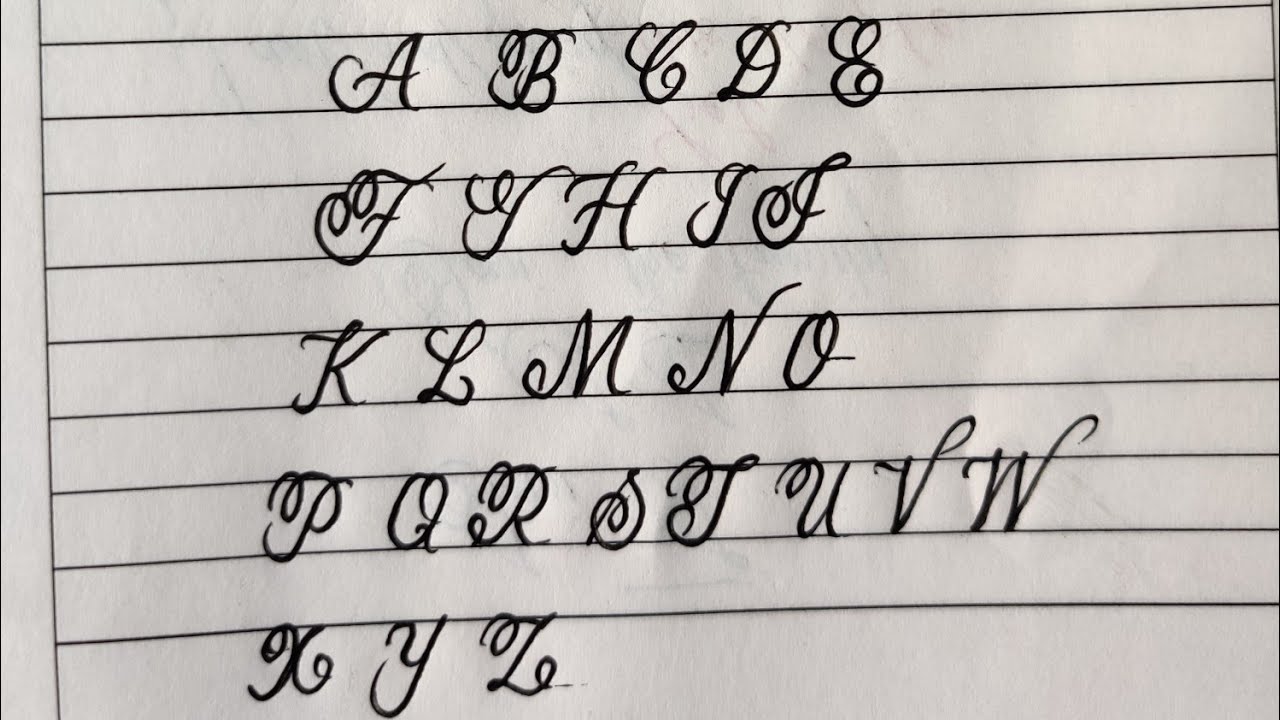 A B C D E
F G H I J
K L M N O
P Q R S T U V W
X Y Z